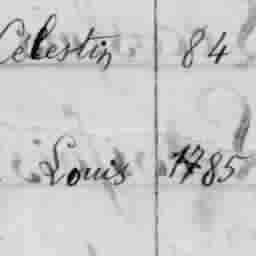 Célestin 84
Louis 1785